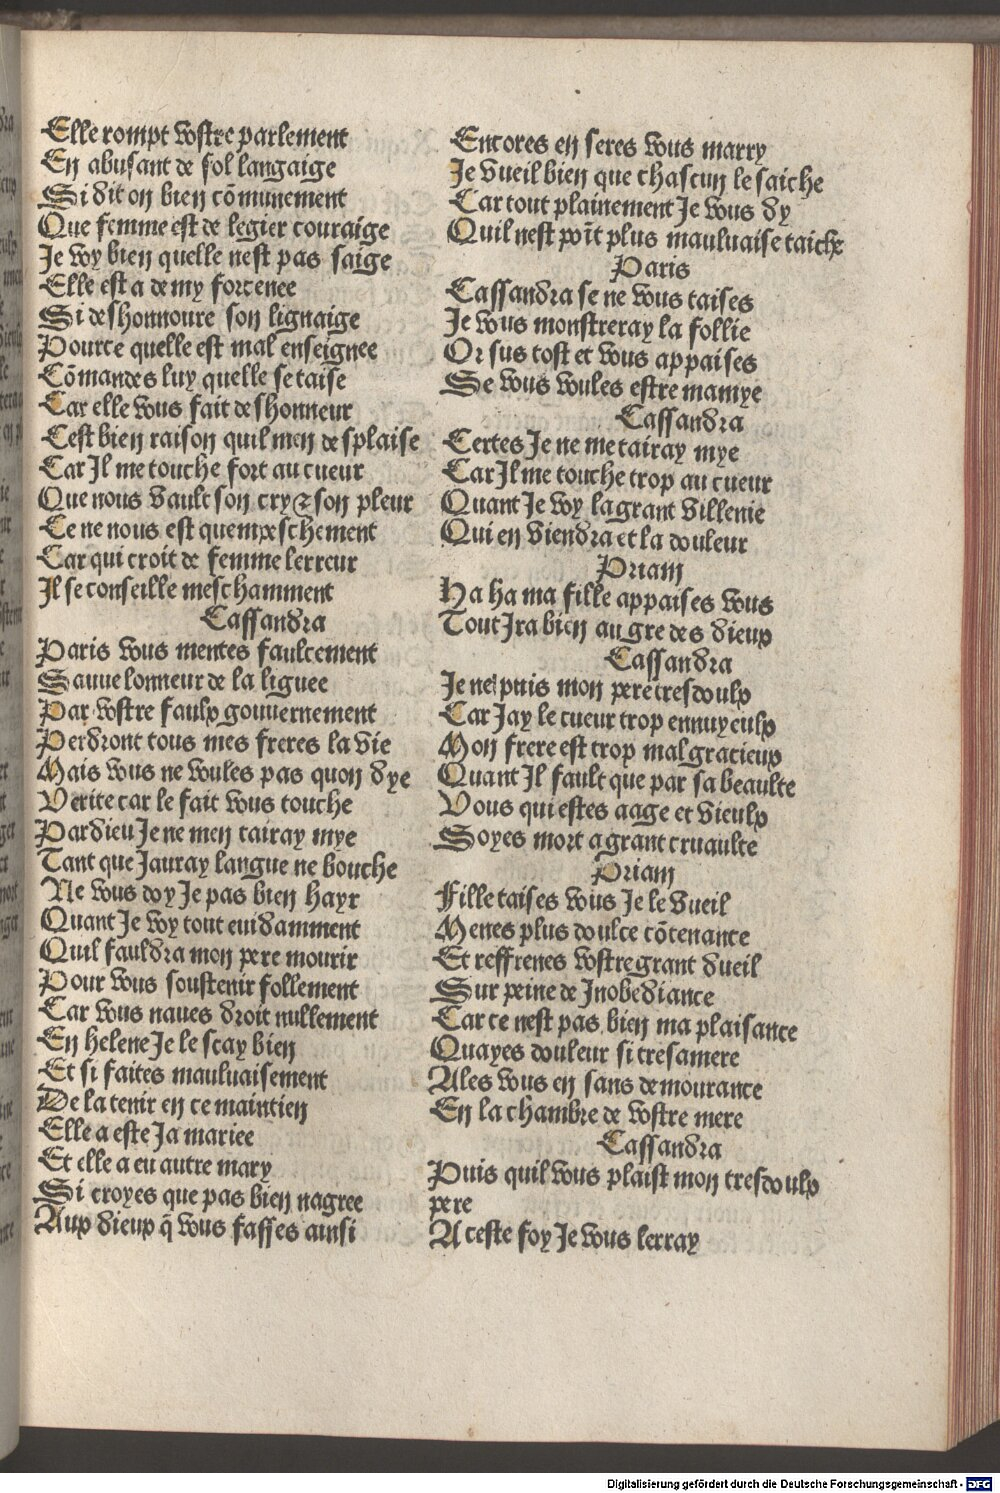 Elle rompt vostre parlement
En abusant de fol langaige
Si dit on bien cõmunement
Que femme est de legier couraige
Je voy bien quelle nest pas saige
Elle est a demy forcenee
Si deshonnoure son lignaige
Pource quelle est mal enseignee
Cõmandes luy quelle se taise
Car elle vous fait deshonneur
Cest bien raison quil men desplaise
Car Jl me touche fort au cueur
Que nous vault son cry & son pleur
Ce ne nous est quempeschement
Car qui croit de femme lerreur
Jl se conseille meschamment
Cassandra
Paris vous mentes faulcement
Sauue lonneur de la liguee
Par vostre faulx gouuernement
Perdront tous mes freres la vie
Mais vous ne voules pas quon dye
Verite car le fait vous touche
Pardieu Je ne men tairay mye
Tant que Jauray langue ne bouche
Ne vous doy Je pas bien hayr
Quant Je voy tout euidamment
Quil fauldra mon pere mourir
Pour vous soustenir follement
Car vous naues droit nullement
En helene Je le scay bien
Et si faites mauluaisement
De la tenir en ce maintien
Elle a este Ja mariee
Et elle a eu autre mary
Si croyes que pas bien nagree
Aux dieux q̃ vous fasses ainsi
Encores en seres vous marry
Je vueil bien que chascun le saiche
Car tout plainement Je vous dy
Quil nest poĩt plus mauluaise taiche
Paris
Cassandra se ne vous taises
Je vous monstreray la follie
Or sus tost et vous appaises
Se vous voules estre mamye
Cassandra
Certes Je ne me tairay mye
Car Jl me touche trop au cueur
Quant Je voy la grant villenie
Qui en viendra et la douleur
Priam
Ha ha ma fille appaises vous
Tout Jra bien au gre des dieux
Cassandra
Je ne puis mon pere tresdoulx
Car Jay le cueur trop ennuyeulx
Mon frere est trop malgracieux
Quant Jl fault que par sa beaulte
Vous qui estes aage et vieulx
Soyes mort a grant cruaulte
Priam
Fille taises vous Je le vueil
Menes plus doulce cõtenance
Et reffrenes vostre grant dueil
Sur peine de Jnobediance
Car ce nest pas bien ma plaisance
Quayes douleur si tresamere
Ales vous en sans demourance
En la chambre de vostre mere
Cassandra
Puis quil vous plaist mon tresdoulx
pere
A ceste foy Je vous lerray
Digitalisierung gefördert durch die Deutsche Forschungsgemeinschaft - DFG